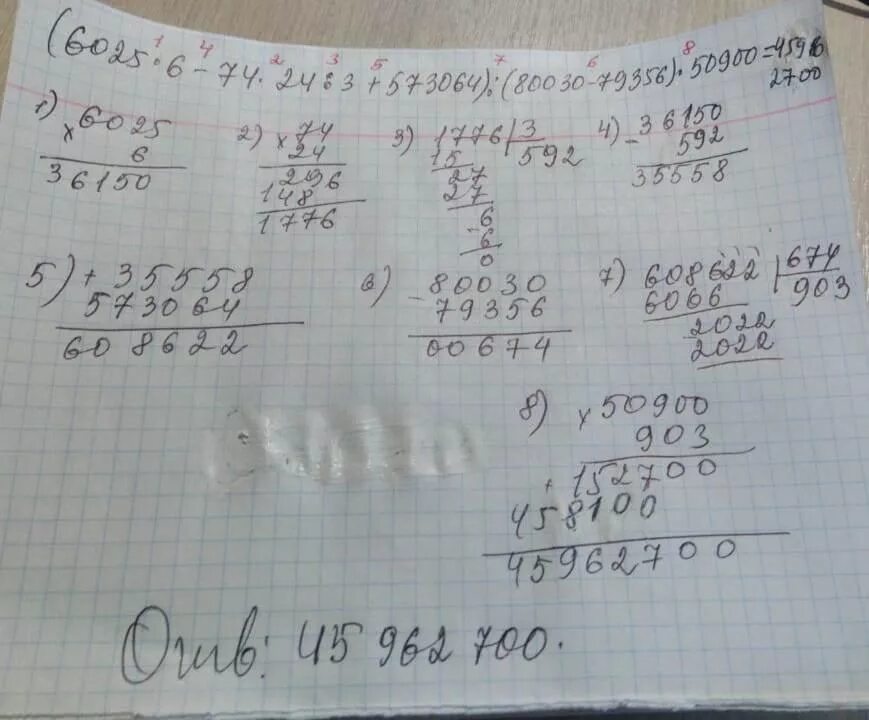 1 4 2 3 5 7 6 8
(6025·6-74·24:3+573064):(80030-79356)·50900=4596
2700
1) ×6025
6
36150
2) ×74
24
296
148
1776
3) 1776|3
15 592
27
27
-6
6
0
4) -36150
592
35558
5) +35558
573064
608622
6) -80030
79356
00674
7) 608622|674
6066 903
2022
2022
8) ×50900
903
+152700
458100
45962700
Отв: 45 962 700.